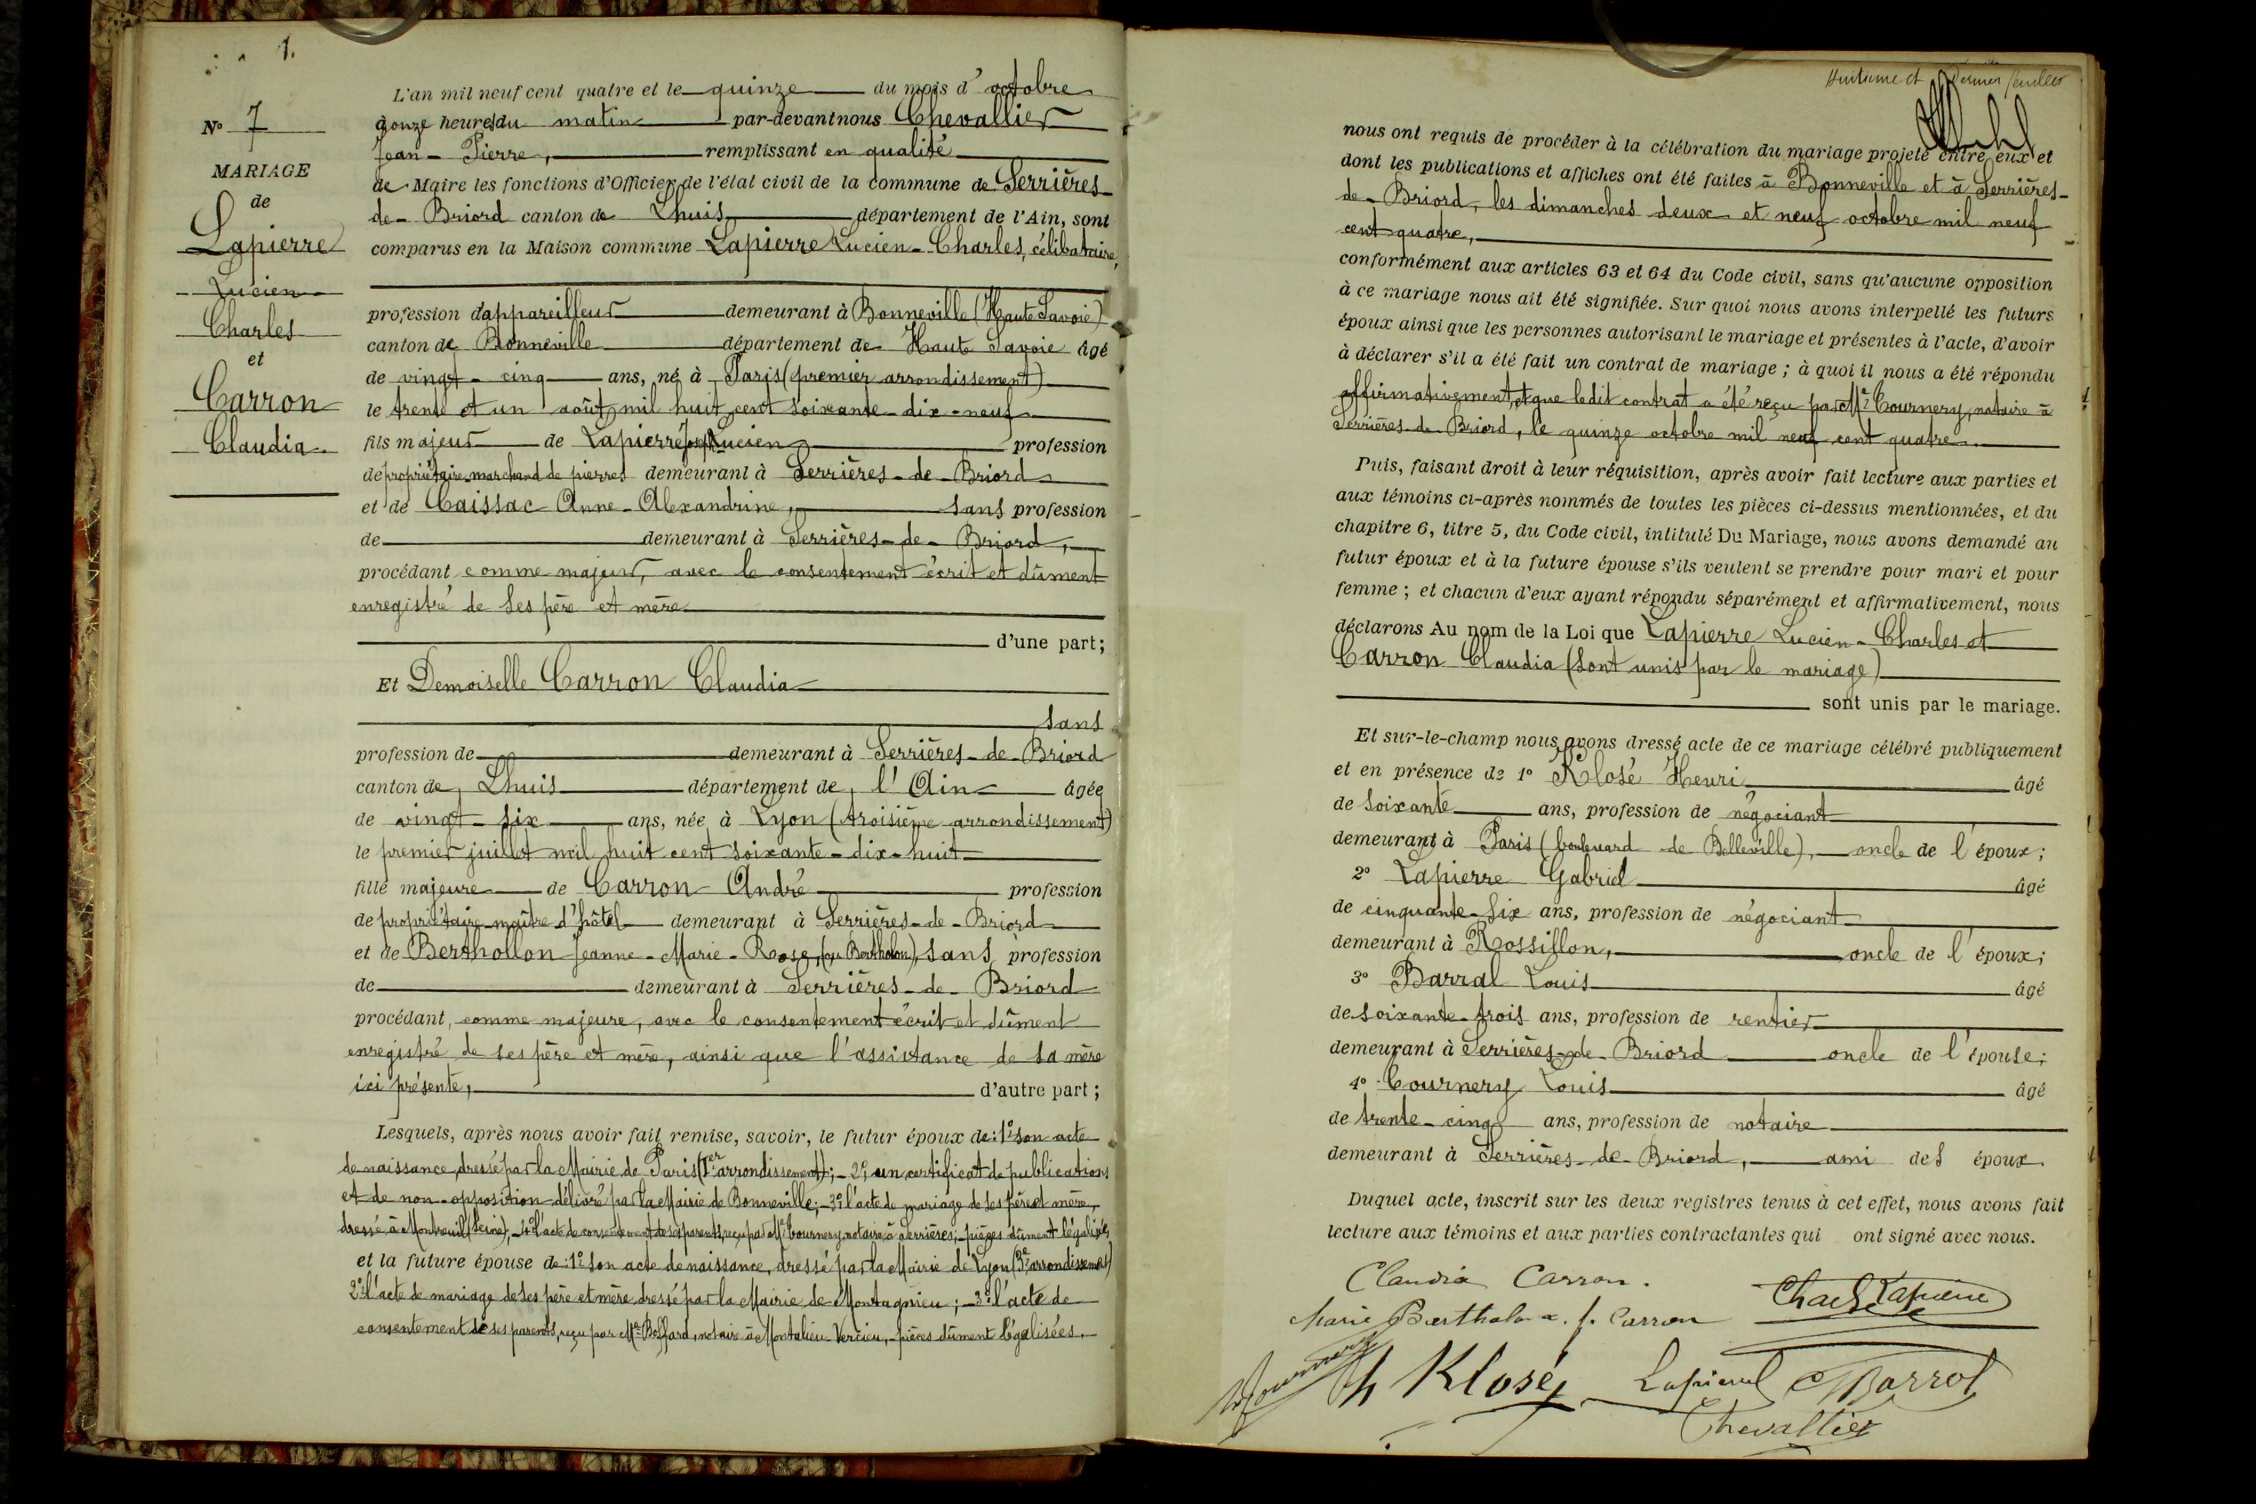 1.
N° 7
MARIAGE
de
Lapierre
Lucien
Charles
et
Carron
Claudia
L'an mil neuf cent quatre et le quinze du mois d'octobre
à onze heures du matin par-devant nous Chevallier
Jean-Pierre, remplissant en qualité
de Maire les fonctions d'Officier de l'état civil de la commune de Serrières-
de-Briord canton de Lhuis, département de l'Ain, sont
comparus en la Maison commune Lapierre Lucien-Charles, célibataire,
profession d'appareilleur demeurant à Bonneville (Haute Savoie)
canton de Bonneville département de Haute Savoie âgé
de vingt-cinq ans, né à Paris (premier arrondissement)
le trente et un août mil huit cent soixante-dix-neuf
fils majeur de Lapierre Joseph Lucien profession
de propriétaire marchand de pierres demeurant à Serrières-de-Briord
et de Caissac Anne-Alexandrine, sans profession
de demeurant à Serrières-de-Briord,
procédant comme majeur, avec le consentement écrit et dûment
enregistré de ses père et mère
d'une part;
Et Demoiselle Carron Claudia
sans
profession de demeurant à Serrières-de-Briord
canton de Lhuis département de l'Ain âgée
de vingt-six ans, née à Lyon (troisième arrondissement)
le premier juillet mil huit cent soixante-dix-huit
fille majeure de Carron André profession
de propriétaire-maître d'hôtel demeurant à Serrières-de-Briord
et de Berthollon Jeanne-Marie-Rose, (ou Bertholon), sans profession
de demeurant à Serrières-de-Briord
procédant, comme majeure, avec le consentement écrit et dûment
enregistré de ses père et mère, ainsi que l'assistance de sa mère
ici présente, d'autre part;
Lesquels, après nous avoir fait remise, savoir, le futur époux de: 1° son acte
de naissance, dressé par la Mairie de Paris (1er arrondissement); - 2° un certificat de publications
et de non-opposition délivré par la Mairie de Bonneville; - 3° l'acte de mariage de ses père et mère,
dressé à Montreuil (Seine), - 4° l'acte de consentement de ses parents, reçu par Me Cournery, notaire à Serrières; - pièces dûment légalisées,
et la future épouse de: 1° son acte de naissance, dressé par la Mairie de Lyon (3e arrondissement)
2° l'acte de mariage de ses père et mère dressé par la Mairie de Montagnieu; - 3° l'acte de
consentement de ses parents, reçu par Me Boffard, notaire à Montalieu-Vercieu, - pièces dûment légalisées.
Huitième et dernier feuillet
nous ont requis de procéder à la célébration du mariage projeté entre eux et
dont les publications et affiches ont été faites à Bonneville et à Serrières-
de-Briord, les dimanches deux et neuf octobre mil neuf
cent quatre,
conformément aux articles 63 et 64 du Code civil, sans qu'aucune opposition
à ce mariage nous ait été signifiée. Sur quoi nous avons interpellé les futurs
époux ainsi que les personnes autorisant le mariage et présentes à l'acte, d'avoir
à déclarer s'il a été fait un contrat de mariage; à quoi il nous a été répondu
affirmativement, et que ledit contrat a été reçu par Me Cournery, notaire à
Serrières-de-Briord, le quinze octobre mil neuf cent quatre.
Puis, faisant droit à leur réquisition, après avoir fait lecture aux parties et
aux témoins ci-après nommés de toutes les pièces ci-dessus mentionnées, et du
chapitre 6, titre 5, du Code civil, intitulé Du Mariage, nous avons demandé au
futur époux et à la future épouse s'ils veulent se prendre pour mari et pour
femme; et chacun d'eux ayant répondu séparément et affirmativement, nous
déclarons Au nom de la Loi que Lapierre Lucien-Charles et
Carron Claudia (sont unis par le mariage)
sont unis par le mariage.
Et sur-le-champ nous avons dressé acte de ce mariage célébré publiquement
et en présence de 1° Klosé Henri âgé
de soixante ans, profession de négociant
demeurant à Paris (boulevard de Belleville), oncle de l'époux;
2° Lapierre Gabriel âgé
de cinquante-six ans, profession de négociant
demeurant à Rossillon, oncle de l'époux;
3° Barral Louis âgé
de soixante-trois ans, profession de rentier
demeurant à Serrières-de-Briord oncle de l'épouse;
4° Cournery Louis âgé
de trente-cinq ans, profession de notaire
demeurant à Serrières-de-Briord, ami des époux.
Duquel acte, inscrit sur les deux registres tenus à cet effet, nous avons fait
lecture aux témoins et aux parties contractantes qui ont signé avec nous.
Claudia Carron.
Charles Lapierre
Marie Bertholon f. Carron
Cournery
h Klosé
Lapierre
Barral
Chevallier